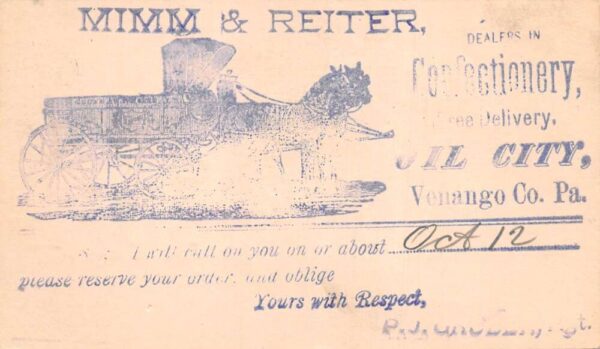 MIMM & REITER,
DEALERS IN
Confectionery,
Free Delivery,
OIL CITY,
Venango Co. Pa.
I will call on you on or about Oct 12
please reserve your order, and oblige
Yours with Respect,